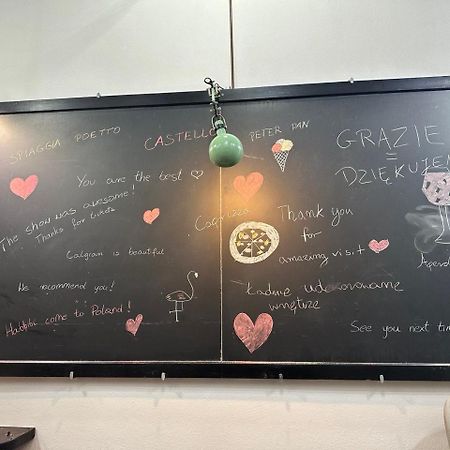 SPIAGGIA POETTO
CASTELLO
PETER PAN
You are the best
The show was awesome!
Thanks for tickets
Calgiari is beautiful
We recommend you!
Habibi come to Poland!
Thank you
for
amazing visit
Ładnie udekorowane
wnętrze
GRAZIE
=
DZIĘKUJEM
See you next tim